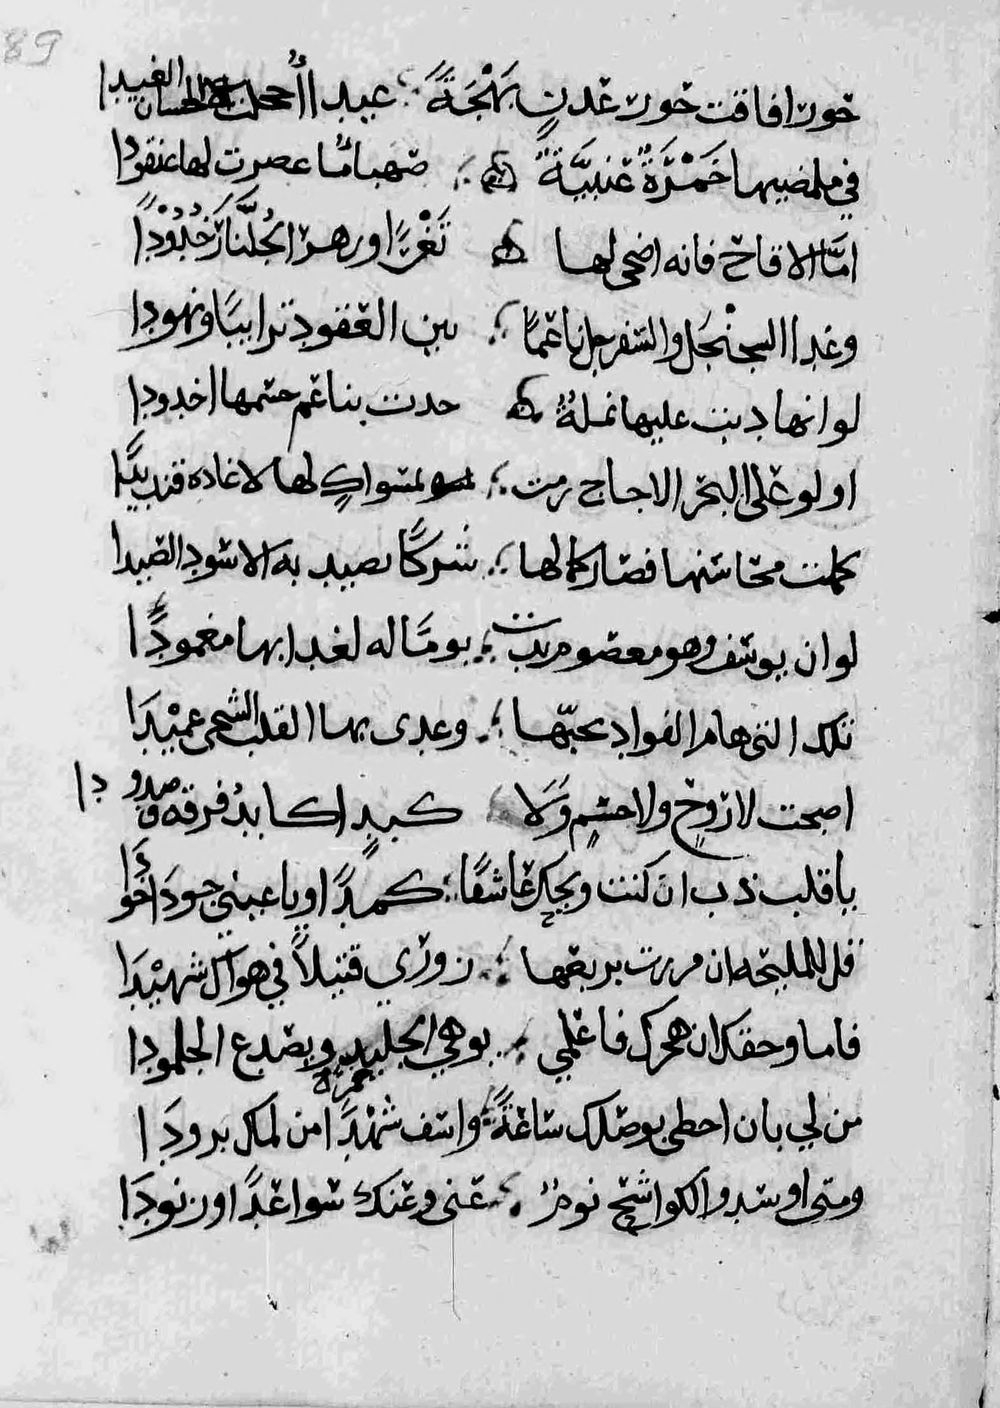 89
حورا فاقت حور عدن بَهْجَةً ؛ عبدا أُحملت الحسان الغيدا
في ملمضيها خَمْرَةٌ عنبيَّةٌ صهبا مُا عصرت لها عنقودا
امَّا الاقاح فانه اضحى لها ثَغْرًا وزهر الجُلَّنَار خُدُوْدًا
وغدا السجنجل والسفرجل ناعمًا ؛ بين العقود ترايبًا ونهودا
لو انها دبت عليها نملةٌ خدت بناعم جسمها اخدودا
او لو على البحر الاجاج رمت ؛ بمسواكٍ لها لاعاده قنديدًا
كملت محاسنها فصار كمالها ؛ شركًا يصيد به الاسود الصيدا
لو ان يوسف وهو معصوم بدت ؛ يومًا له لغدا بها مغمودًا
تلك التي هام الفواد بحبّها ؛ وغدى بها القلب الشجي عميْدَا
اصبحت لا رُوحٍ ولا جسمٍ وَلا كبدٍ اكابدُ فرقه وصدودا
يا قلب ذب ان كنت ويحك عاشقًا ؛ كمدًا ويا عيني جودَا خوّدَا
قل للمليحه ان مررت بربعها ؛ زوري قتيلاً في هواك شهيْدَا
فاما وحقك ان هجرك فاعلمي يوهي الجليد ويصدع الجلمودا
من لي بان احظى بوصلك ساعةً ؛ واشف شَهْدًا من لماك برودَا
ومتى اوسد والكواشح نومٌ ؛ عني وعنك سواعدًا وزنودَا